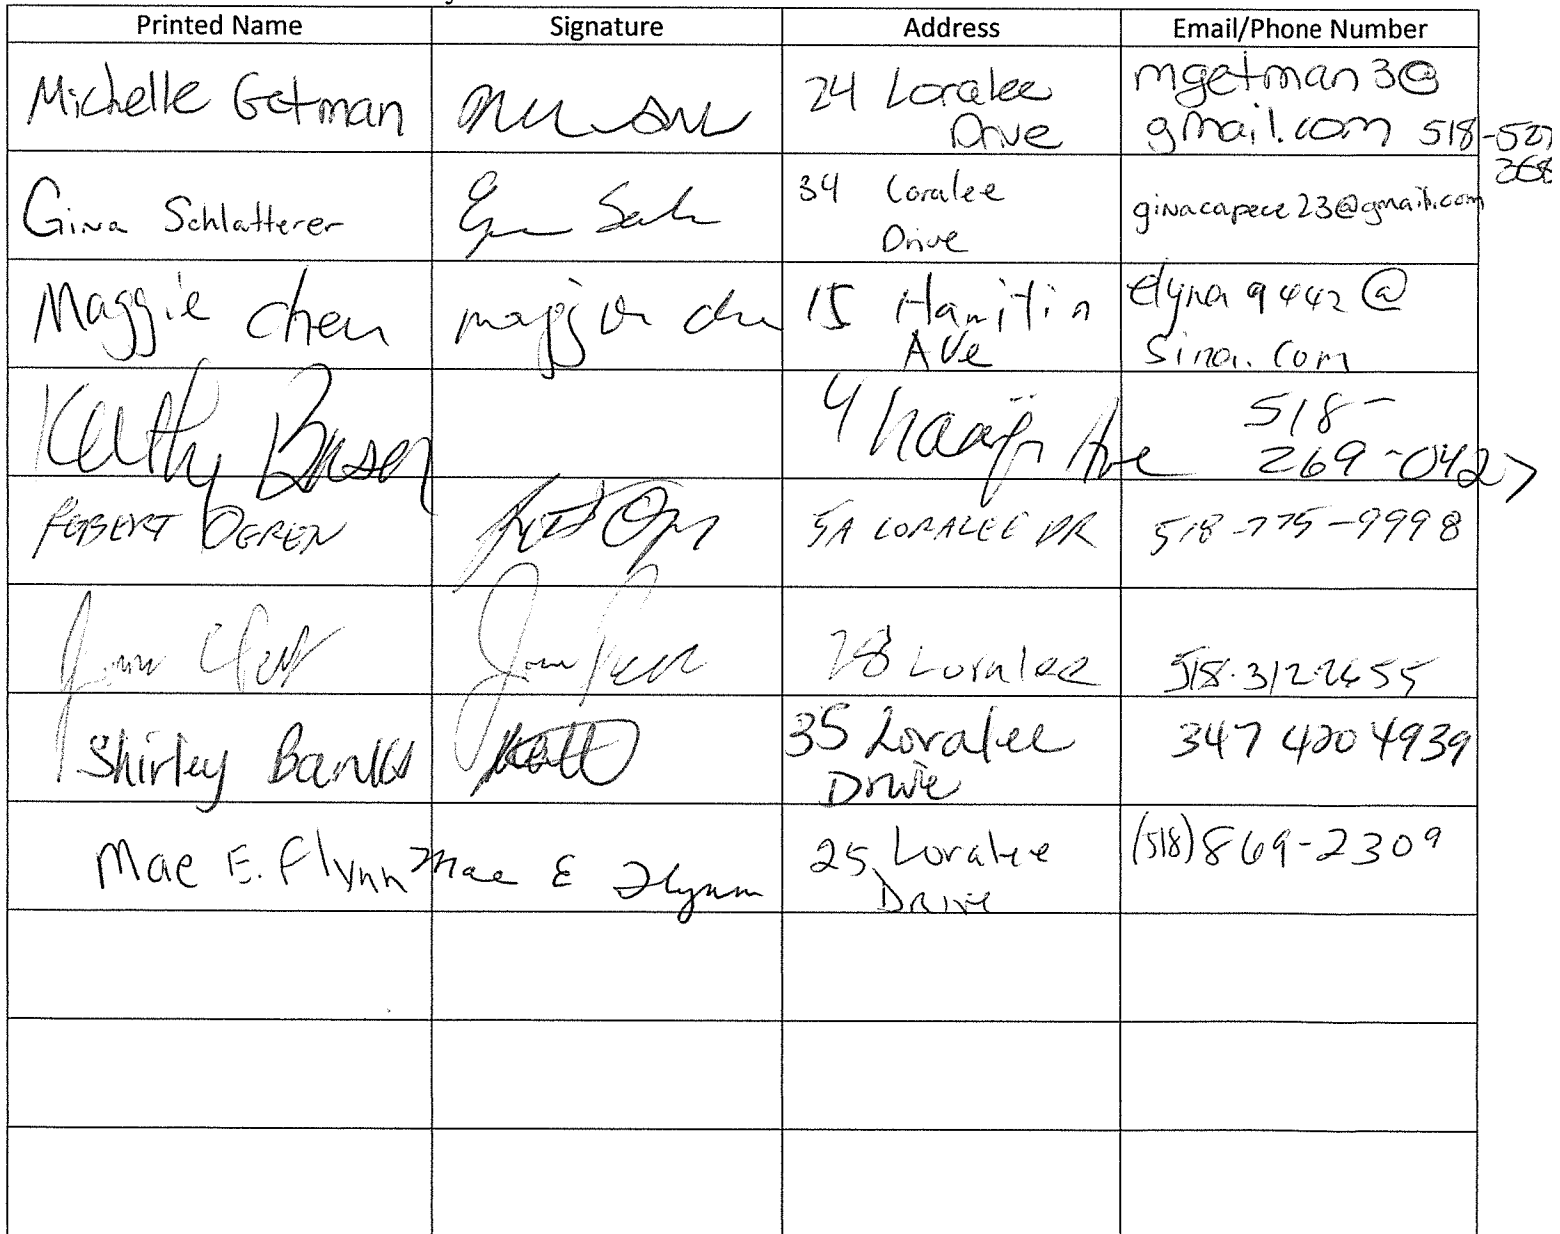 Printed Name Signature Address Email/Phone Number
Michelle Getman 24 Loralee mgetman3@
Drive gmail.com 518-527
268
Gina Schlatterer 34 Loralee ginacapece23@gmail.com
Drive
Maggie chen maggie chen 15 Ave elyna9442@
sina.com
Kathy 4 Ave 518-
269-0427
ROBERT OGREN 5A LORALEE DR 518-775-9998
28 Loralee 518.312.2655
Shirley Banks 35 Loralee 347 420 4939
Drive
Mae E. Flynn Mae E Flynn 25 Loralee (518) 869-2309
Drive